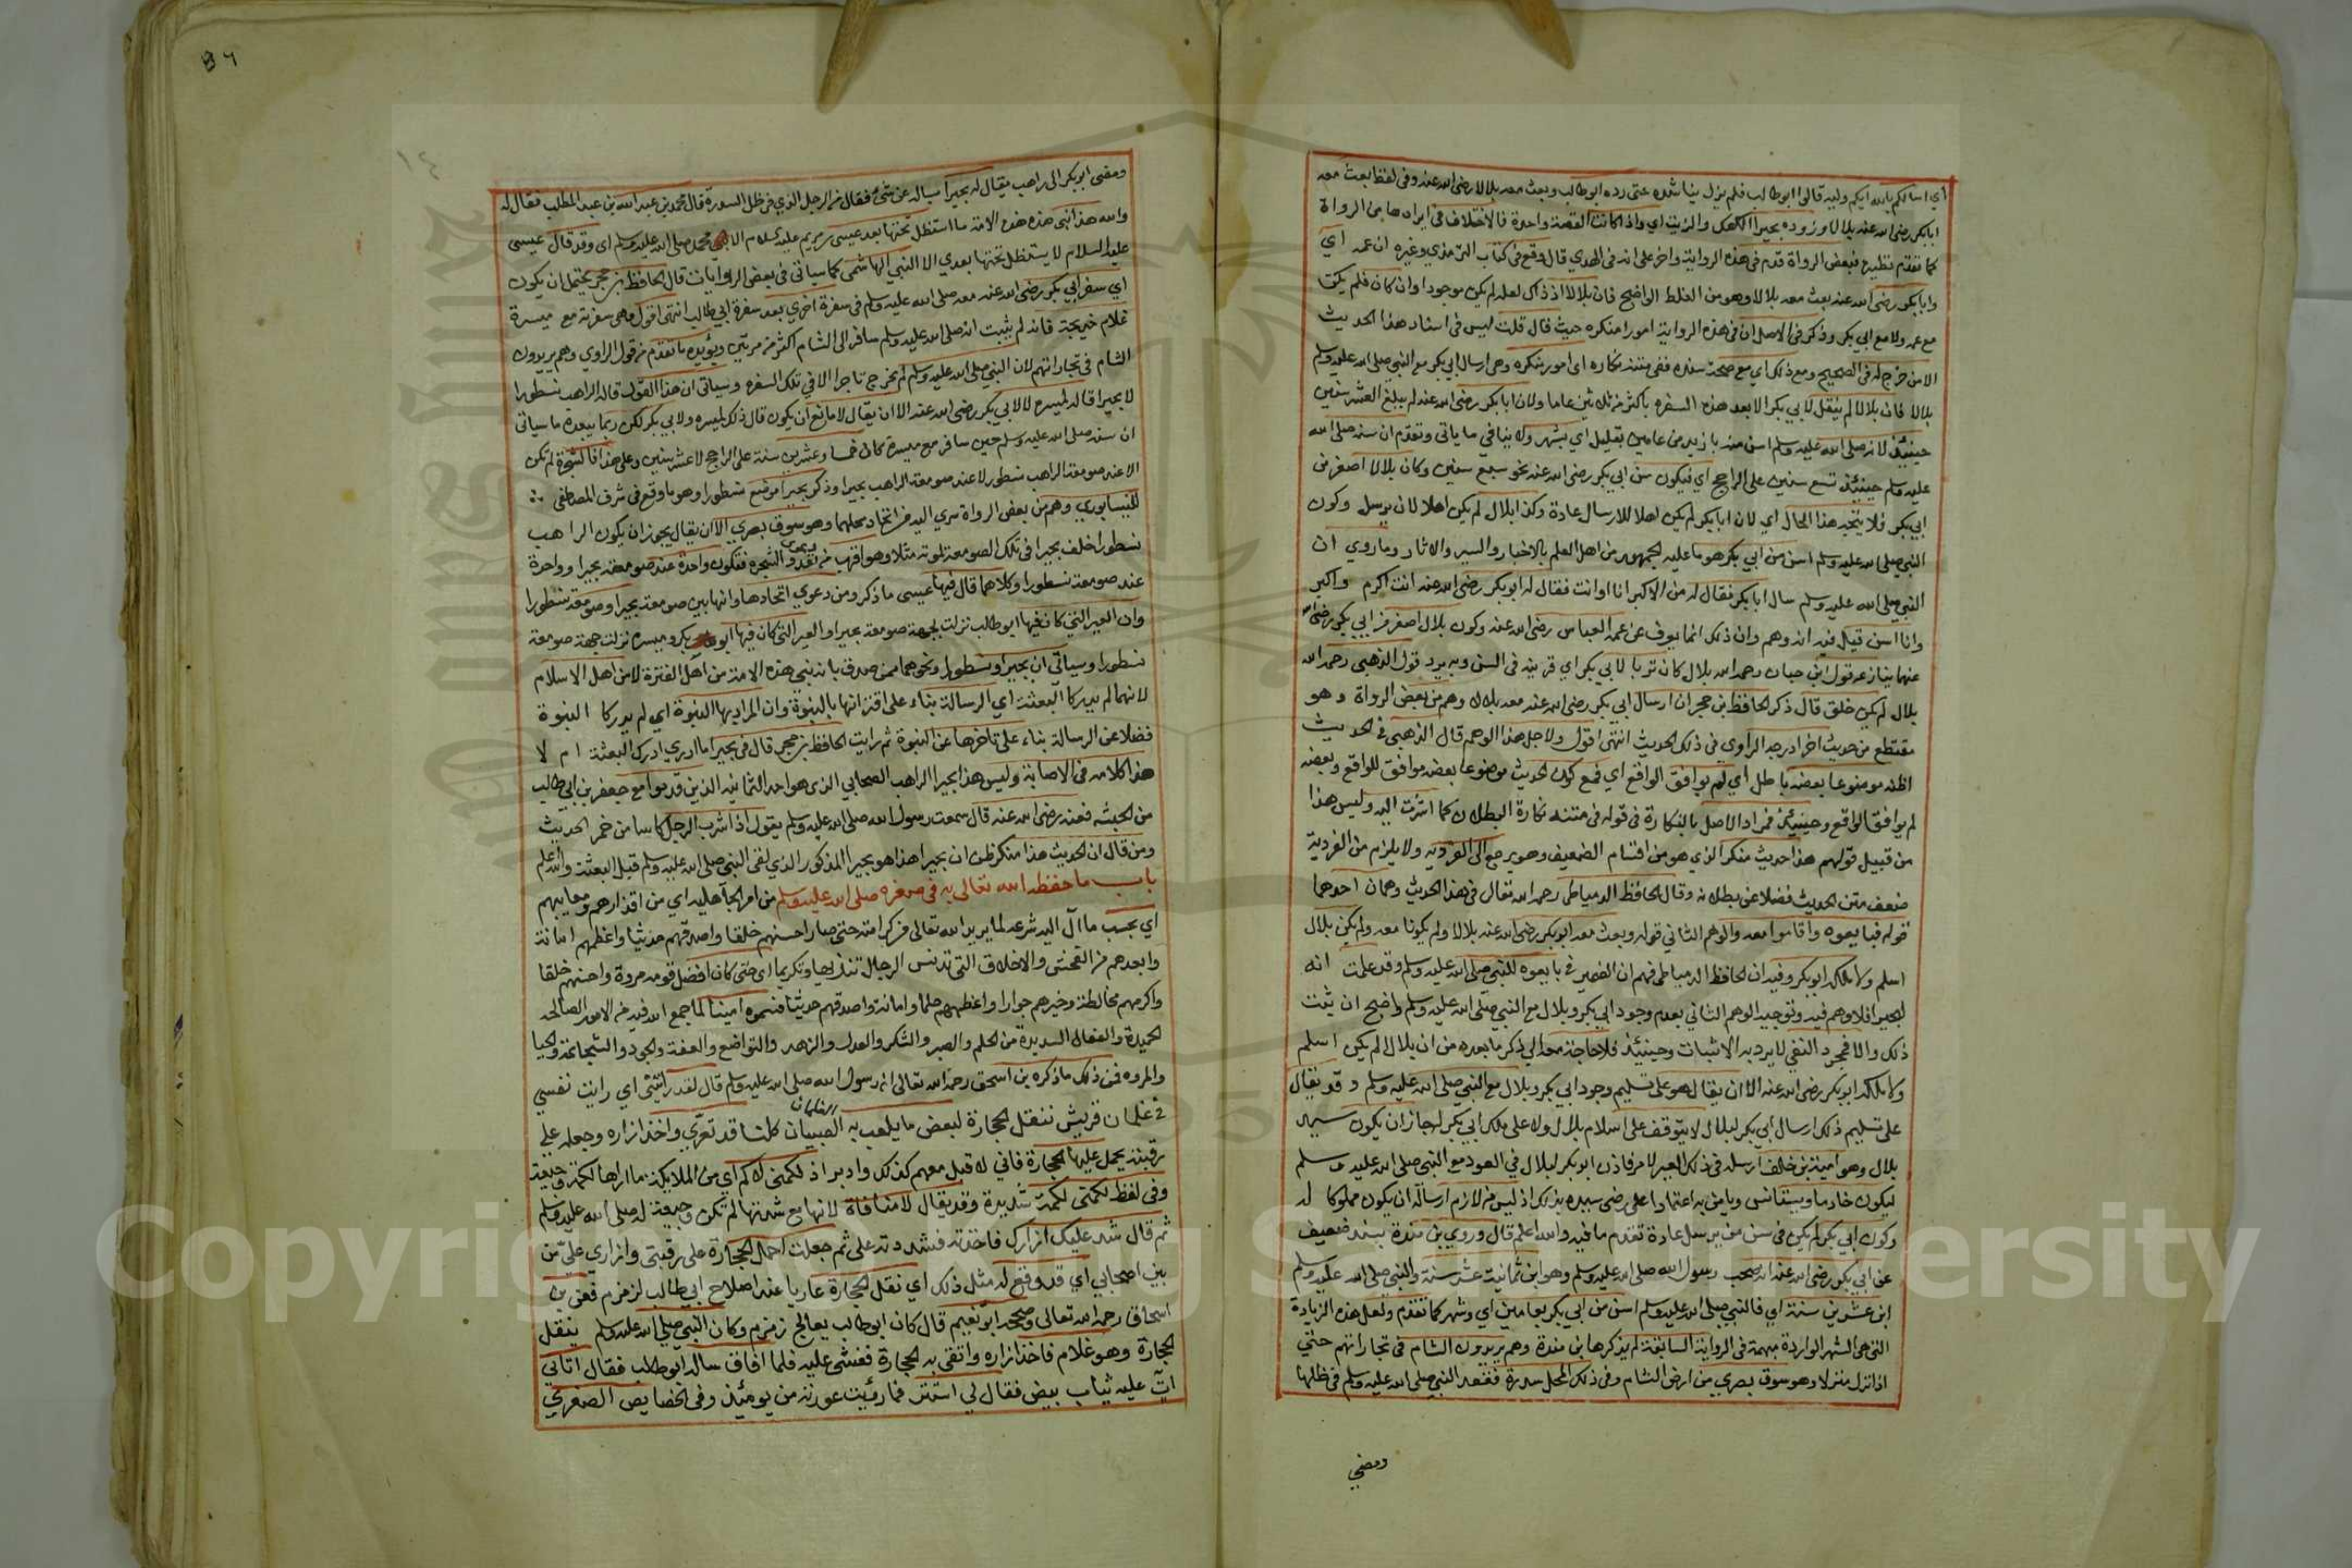 اي اسالكم بالله ايكم وليه قالوا ابوطالب فلم يزل يناشده حتى رده ابوطالب وبعث معه بلالا رضى الله عنه وفي لفظ بعث معه
ابابكر رضى الله عنه بلالا وزوده بحيرا الكعك والزيت اي واذا كانت القصة واحدة فالاختلاف في ايرادها من الرواة
كما تقدم نظيره فبعض الرواة قدم في هذه الرواية واخر على انه في الهدي قال وقع في كتاب الترمذي وغيره ان عمه اي
وابابكر رضى الله عنه بعث معه بلالا وهو من الغلط الواضح فان بلالا اذ ذاك لعله لم يكن موجودا وان كان فلم يكن
مع عمه ولا مع ابي بكر وذكر في الاصل ان في هذه الرواية امورا منكره حيث قال قلت ليس في اسناد هذا الحديث
الا من خرج له في الصحيح ومع ذلك اي مع صحة سنده ففي متنه نكاره اي امور منكره وهي ارسال ابي بكر مع النبي صلى الله عليه وسلم
بلالا فان بلالا لم ينتقل لابي بكر الا بعد هذه السفره باكثر من ثلاثين عاما ولان ابابكر رضى الله عنه لم يبلغ العشر سنين
حينئذ لانه صلى الله عليه وسلم اسن منه بازيد من عامين بقليل اي بشهر ولا ينافي ما ياتي وتقدم ان سنه صلى الله
عليه وسلم حينئذ تسع سنين على الراجح اي فيكون سن ابي بكر رضى الله عنه نحو سبع سنين وكان بلال اصغر من
ابي بكر فلا يتجه هذا الحال اي لان ابابكر لم يكن اهلا للارسال عادة وكذا بلال لم يكن اهلا لان يرسل وكون
النبي صلى الله عليه وسلم اسن من ابي بكر هو ما عليه الجمهور من اهل العلم بالاخبار والسير والاثار وما روي ان
النبي صلى الله عليه وسلم سال ابابكر فقال له من الاكبر انا او انت فقال له ابوبكر رضى الله عنه انت اكرم واكبر
وانا اسن قيل فيه انه وهم وان ذلك انما يعرف عن عمه العباس رضى الله عنه وكون بلال اصغر من ابي بكر رضى الله
عنهما ينازعه قول ابن حبان رحمه الله بلال كان تربا لابي بكر اي قرينه في السن وبه يرد قول الذهبي رحمه الله
بلال لم يكن خلق قال ذكر الحافظ بن حجر ان ارسال ابي بكر رضى الله عنه معه بلالا وهم من بعض الرواة وهو
مقتطع من حديث اخر ادرجه الراوي في ذلك الحديث انتهى اقول ولاجل هذا الوهم قال الذهبي في الحديث
اظنه موضوعا بعضه باطل اي لم يوافق الواقع اي فمع كون الحديث موضوعا بعضه موافق للواقع وبعضه
لم يوافق الواقع وحينئذ فمراد الاصل بالنكارة في قوله في متنه نكارة البطلان كما اشرت اليه وليس هذا
من قبيل قولهم هذا حديث منكر الذي هو من اقسام الضعيف وهو يرجع الى الفرديه ولا يلزم من الفردية
ضعف متن الحديث فضلا عن بطلانه وقال الحافظ الدمياطي رحمه الله تعالى في هذا الحديث وهمان احدهما
قوله فبايعوه واقاموا معه والوهم الثاني قوله وبعث معه ابوبكر رضى الله عنه بلالا ولم يكونا معه ولم يكن بلال
اسلم ولا ملكه ابوبكر وفيه ان الحافظ الدمياطي فهم ان الضمير في بايعوه للنبي صلى الله عليه وسلم وقد علمت انه
لبحيرا فلا وهم فيه وتوجيه الوهم الثاني بعدم وجود ابي بكر وبلال مع النبي صلى الله عليه وسلم واضح ان ثبت
ذلك والا فمجرد النفي لا يرد به الاثبات وحينئذ فلا حاجة معه الي ذكر ما بعده من ان بلالا لم يكن اسلم
ولا ملكه ابوبكر رضى الله عنه الا ان يقال هو على تسليم وجود ابي بكر وبلال مع النبي صلى الله عليه وسلم وقد يقال
على تسليم ذلك ارسال ابي بكر لبلال لا يتوقف على اسلام بلال ولا على ملك ابي بكر له لجواز ان يكون سيد
بلال وهو امية بن خلف ارسله في ذلك العير لامر فاذن ابوبكر لبلال في العود مع النبي صلى الله عليه وسلم
ليكون خادما ويستانس ويامن به اعتمادا على رضى سيده بذلك اذ ليس من لازم ارساله ان يكون مملوكا له
وكون ابي بكر لم يكن في سن من يرسل عادة تقدم ما فيه والله اعلم قال وروي بن مندة بسند ضعيف
عن ابي بكر رضى الله عنه انه صحب رسول الله صلى الله عليه وسلم وهو ابن ثمانية عشر سنة والنبي صلى الله عليه وسلم
ابن عشرين سنة اي فالنبي صلى الله عليه وسلم اسن من ابي بكر بعامين اي وشهر كما تقدم ولعل هذه الزيادة
التي هي الشهر الواردة مبهمة في الرواية السابقة لم يذكرها بن مندة وهم يريدون الشام في تجاراتهم حتي
اذا نزل منزلا وهو سوق بصري من ارض الشام وفي ذلك المحل سدرة فقعد النبي صلى الله عليه وسلم في ظلها
ومضي
٣٦
١٤
ومضى ابوبكر الى راهب يقال له بحيرا يساله عن شيء فقال من الرجل الذي في ظل السدرة قال محمد بن عبد الله بن عبد المطلب فقال له
والله هذا نبي هذه الامة ما استظل تحتها بعد عيسى بن مريم عليه السلام الا محمد صلى الله عليه وسلم اي وقد قال عيسى
عليه السلام لا يستظل تحتها بعدي الا النبي الهاشمي كما سياتي في بعض الروايات قال الحافظ بن حجر يحتمل ان يكون
اي سفر ابي بكر رضى الله عنه معه صلى الله عليه وسلم في سفرة اخري بعد سفرة ابي طالب انتهى اقول وهي سفرته مع ميسرة
غلام خديجة فانه لم يثبت انه صلى الله عليه وسلم سافر الى الشام اكثر من مرتين ويؤيده ما تقدم من قول الراوي وهم يريدون
الشام في تجاراتهم لان النبي صلى الله عليه وسلم لم يخرج تاجرا الا في تلك السفره وسياتي ان هذا القول قاله الراهب نسطورا
لا بحيرا قاله لميسره لا لابي بكر رضى الله عنه الا ان يقال لا مانع ان يكون قال ذلك لميسره ولابي بكر لكن ربما يبعده ما سياتى
ان سنه صلى الله عليه وسلم حين سافر مع ميسرة كان خمسا وعشرين سنة على الراجح لا عشر سنين وعلى هذا فالشجرة لم تكن
الا عند صومعة الراهب نسطورا لا عند صومعة الراهب بحيرا وذكر بحيرا موضع نسطورا وهو ما وقع في شرف المصطفى
للنيسابوري وهم من بعض الرواة سري اليه من اتحاد محلهما وهو سوق بصري الا ان يقال يجوز ان يكون الراهب
نسطورا خلف بحيرا في تلك الصومعة لموته مثلا وهو اقرب من دعوى تعدد الشجره فتكون واحدة عند صومعة بحيرا وواحدة
عند صومعة نسطورا وكلاهما قال فيها عيسى ما ذكر ومن دعوي اتحادها وانها بين صومعة بحيرا وصومعة نسطورا
وان العير التي كان فيها ابوطالب نزلت بجهة صومعة بحيرا والعير التي كان فيها ابوبكر وميسره نزلت جهة صومعة
نسطورا وسياتي ان بحيرا ونسطورا ونحوهما ممن صدق بانه نبي هذه الامة من اهل الفترة لا من اهل الاسلام
لانهما لم يدركا البعثة اي الرسالة بناء على اقترانها بالنبوة وان المراد بها النبوة اي لم يدركا النبوة
فضلا عن الرسالة بناء على تاخرها عن النبوة ثم رايت الحافظ بن حجر قال في بحيرا ما ادري ادرك البعثة ام لا
هذا كلامه في الاصابة وليس هذا بحيرا الراهب الصحابي الذي هو احد الثمانية الذين قدموا مع جعفر بن ابي طالب
من الحبشه فعنه رضى الله عنه قال سمعت رسول الله صلى الله عليه وسلم يقول اذا شرب الرجل كاسا من خمر الحديث
ومن قال ان الحديث هذا منكر ظن ان بحيرا هذا هو بحيرا المذكور الذي لقى النبي صلى الله عليه وسلم قبل البعثة والله اعلم
باب ما حفظه الله تعالى به في صغره صلى الله عليه وسلم من امر الجاهليه اي من اقذارهم ومعايبهم
اي بحسب ما آل اليه شرعه لما يريد الله تعالى من كرامته حتى صار احسنهم خلقا واصدقهم حديثا واعظمهم امانة
وابعدهم من الفحش والاخلاق التي تدنس الرجال تنزيها وتكريما اي حتى كان افضل قومه مروة واحسنهم خلقا
واكرمهم مخالطة وخيرهم جوارا واعظمهم حلما وامانة واصدقهم حديثا فسموه امينا لما جمع الله فيه من الامور الصالحه
الحميدة والفعال السديدة من الحلم والصبر والشكر والعدل والزهد والتواضع والعفة والجود والشجاعة والحيا
والمروه فمن ذلك ما ذكره بن اسحق رحمه الله تعالى ان رسول الله صلى الله عليه وسلم قال لقد رايتني اي رايت نفسي
في غلمان قريش ننقل الحجارة لبعض ما يلعب به الغلمان الصبيان كلنا قد تعري واخذ ازاره وجعله على
رقبته يحمل عليها الحجارة فاني لاقبل معهم كذلك وادبر اذ لكمني لاكم اي من الملائكة ما اراها لكمة وجيعة
وفي لفظ لكمني لكمة شديدة وقد يقال لا منافاة لانها مع شدتها لم تكن وجيعة له صلى الله عليه وسلم
ثم قال شد عليك ازارك فاخذته فشددته على ثم جعلت احمل الحجارة على رقبتي وازاري علي من
بين اصحابي اي قد وقع له مثل ذلك اي نقل الحجارة عاريا عند اصلاح ابي طالب لزمزم فعن بن
اسحاق رحمه الله تعالى وصححه ابو نعيم قال كان ابوطالب يعالج زمزم وكان النبي صلى الله عليه وسلم ينقل
الحجارة وهو غلام فاخذ ازاره واتقى به الحجارة فغشى عليه فلما افاق ساله ابوطالب فقال اتاني
آت عليه ثياب بيض فقال لي استتر فما رؤيت عورته من يومئذ وفي الخصايص الصغري
Copyright © King Saud University